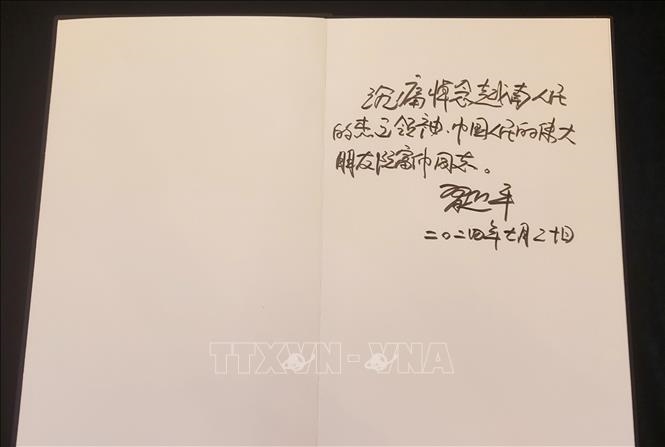 沉痛悼念越南人民
的杰出领袖、中国人民的伟大
朋友阮富仲同志。
习近平
二〇二四年七月二十日
TTXVN - VNA